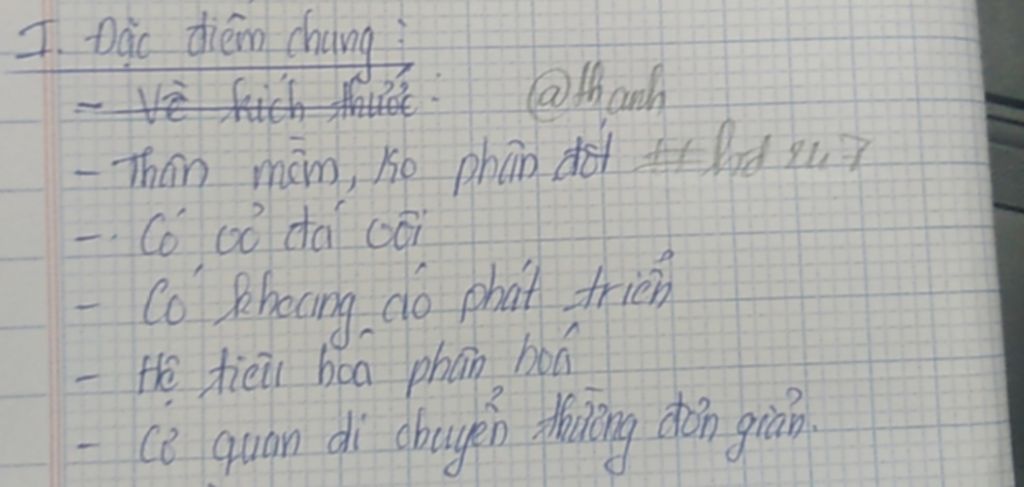 I. Đặc điểm chung:
- Về kích thước:
@thanh
- Thân mềm, ko phân đốt
- Có vỏ đá vôi
- Có khoang áo phát triển
- Hệ tiêu hoá phân hoá
- Cơ quan di chuyển thường đơn giản.